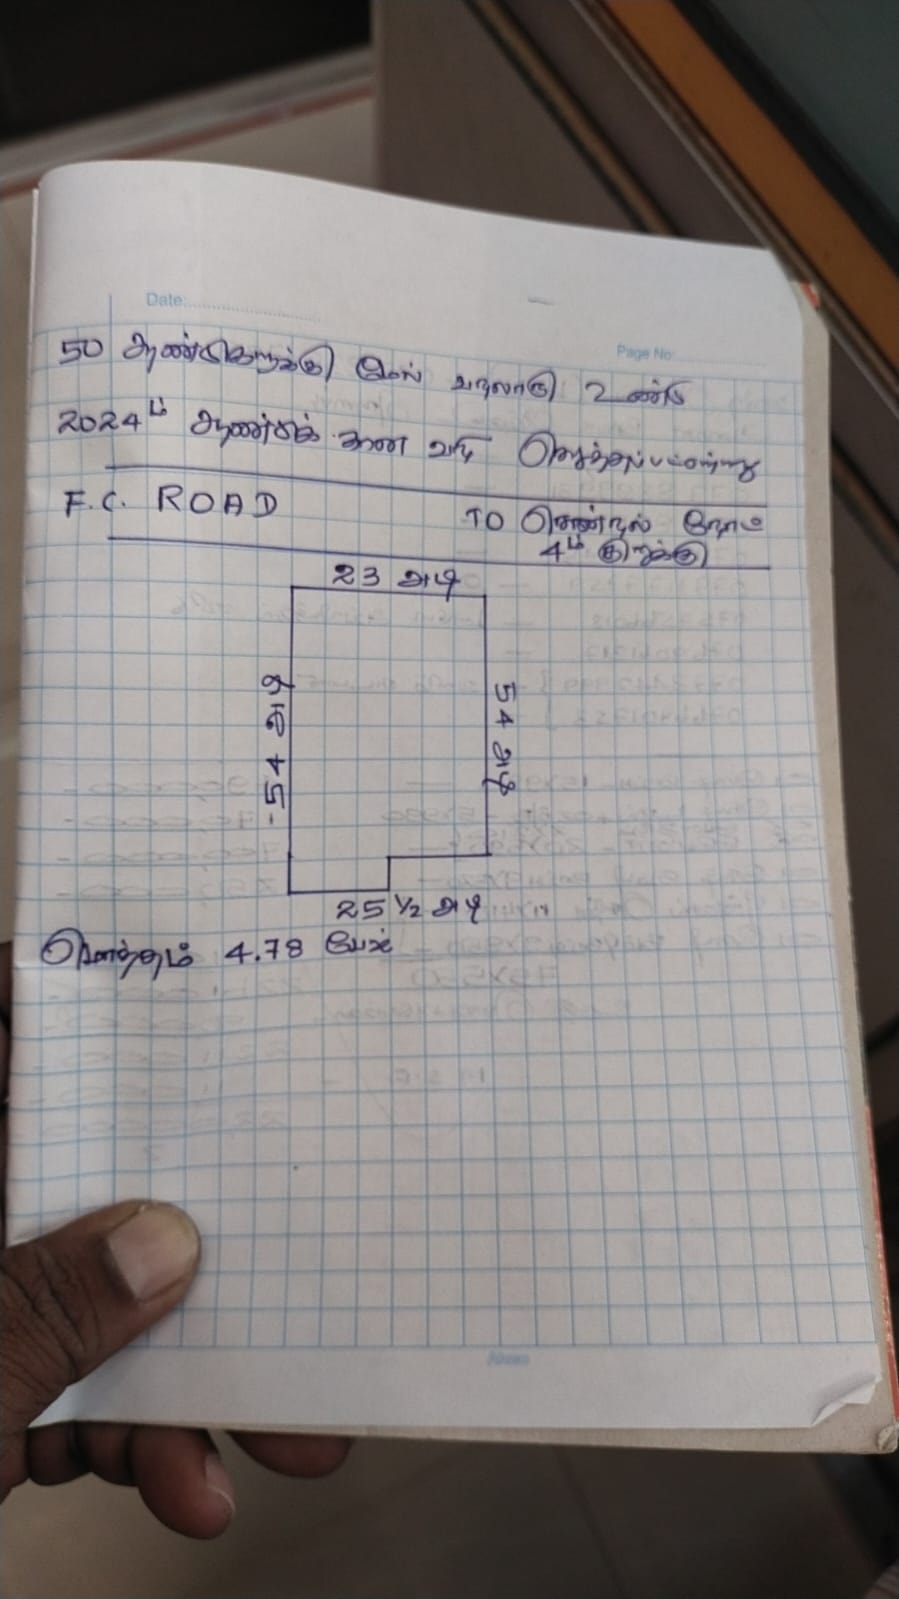 Date:
Page No:
50 ஆண்டுகளுக்கு மேல் வரலாறு உண்டு
2024ம் ஆண்டிக் கான வரி செலுத்தப்பட்டுள்ளது
F.C. ROAD TO சென்றல் ரோட்
4ம் குறுக்கு
23 அடி
54 அடி
54 அடி
25 ½ அடி
மொத்தம் 4.78 பேர்ச்